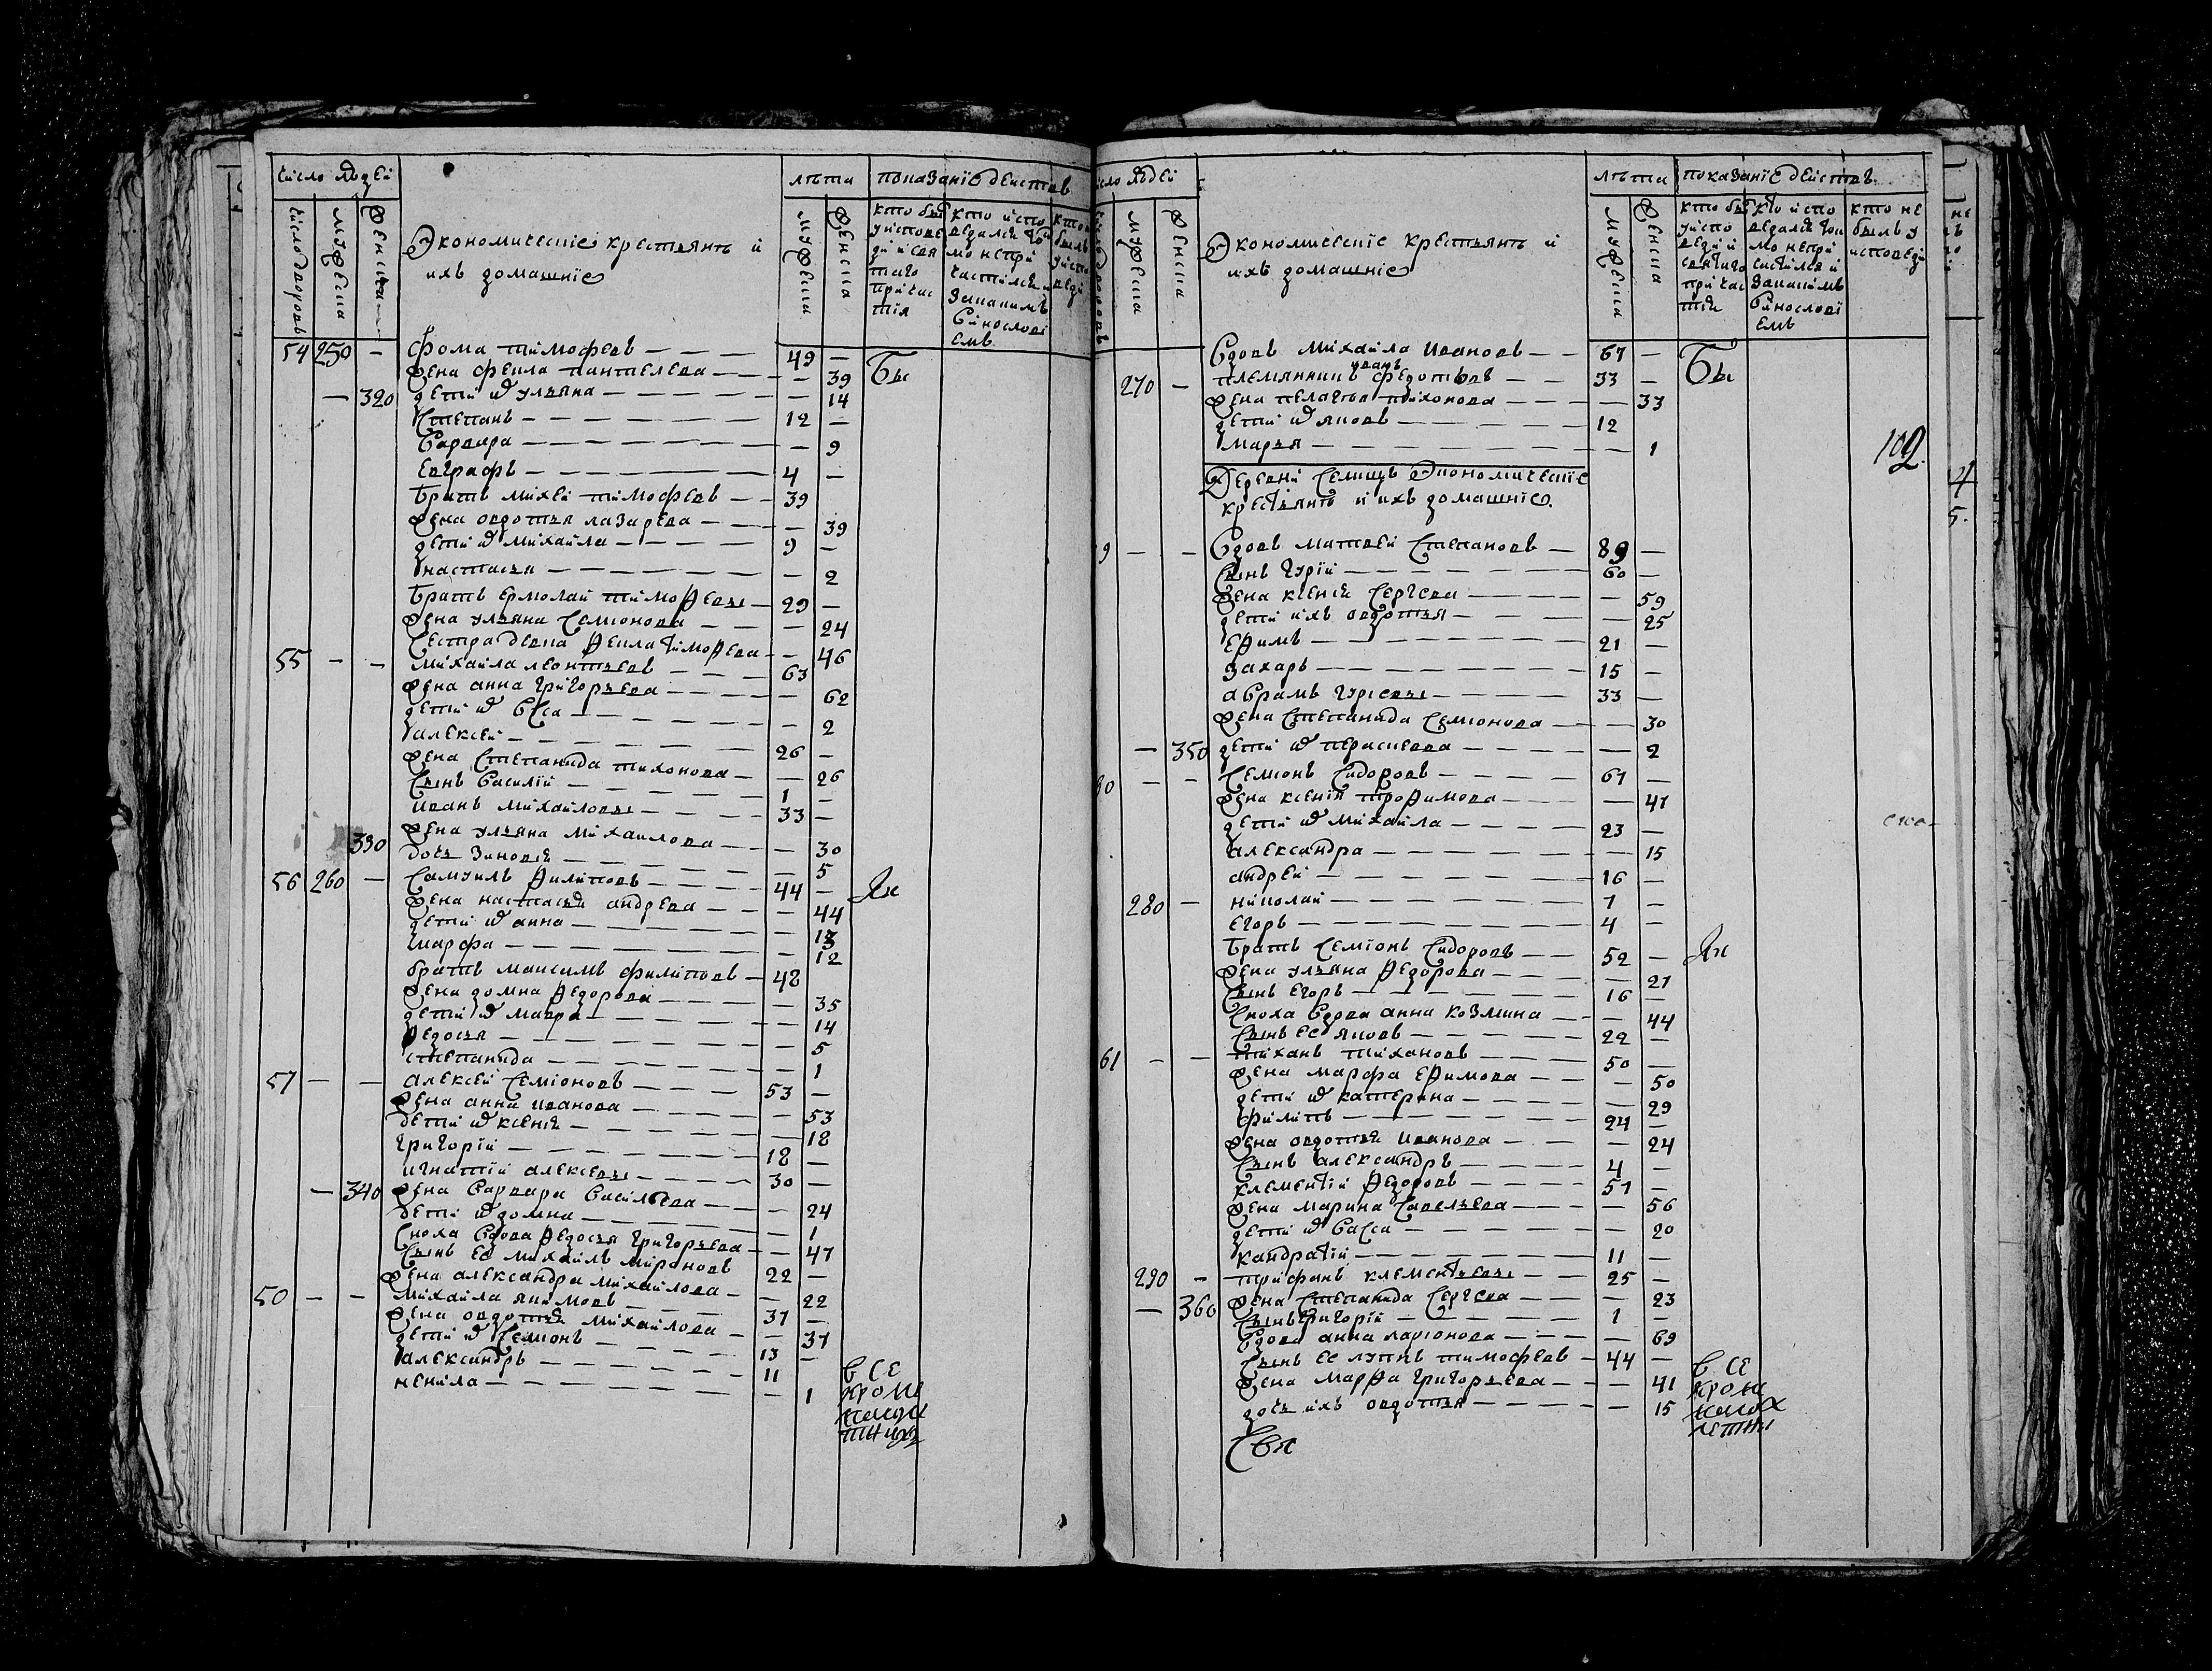 число людей
лѣта
показанїе действъ
число дворовъ
мужеска
женска
Экономическїе крестьянъ и
ихъ домашнїе
мужеска
женска
кто былъ у исповеди и святаго причастїя
кто исповедался токмо не причастился и за какимъ винословїемъ
54 250 — Фома тимофеевъ — 49 —
жена фекла пантелеева — — 39 Бы
— 320 дети ѿ ульяна — — 14
степанъ — 12 —
варвара — — 9
евграфъ — 4 —
братъ михей тимофеевъ — 39
жена овдотья лазарева — — 39
дети ѿ михайла — 9 —
настасья — — 2
братъ ермолай тимофеевъ — 29 —
жена ульяна семионова — — 24
сестра девка фекла тимофева — — 46
55 — — михайла леонтьевъ — 63
жена анна григорьева — — 62
дети ѿ васса — — 2
алексей — 26 —
жена степанида тихонова — — 26
сынъ василїй — 1 —
иванъ михайловъ — 33 —
жена ульяна михаилова — — 30
330 дочь зиновїя — — 5
56 260 — самуилъ филиповъ — 44 — ли
жена настасья андрева — — 44
дети ѿ анна — — 13
марфа — — 12
братъ максимъ филиповъ — 48
жена домна федорова — — 35
дети ѿ мавра — — 14
федосья — — 5
степанида — — 1
57 — — алексей семионовъ — 53 —
жена анна иванова — — 53
дети ѿ ксенїя — — 18
григорїй — 18 —
игнатїй алексевъ — 30 —
— 340 жена варвара васильева — — 24
дети ѿ домна — — 1
сноха вдова федосья григорьева — — 47
сынъ ее михайлъ мироновъ 22 —
жена александра михайлова — — 22
50 — — михайла якимовъ — 37 —
жена овдотья михайлова — — 37
дети ѿ семионъ — 13 —
александръ — 11
ненила — — 1
все
кроме
число людей
лѣта
показанїе действъ.
мужеска
женска
Экономическїе крестьянъ и
ихъ домашнїе
мужеска
женска
кто былъ у исповеди и святаго причастїя
кто исповедался токмо не причастился и за какимъ винословїемъ
кто не былъ у исповеди
Вдовъ михайла ивановъ — 67 — Бы
иванъ
270 — племянникъ федотовъ — 33 —
жена пелагья тихонова — — 33
дети ѿ яковъ — 12
марья — — 1
102
Деревни селищъ экономическїе
крестьянъ и ихъ домашнїе.
9 — — Вдовъ матвей степановъ — 89 —
сынъ гурїй — 60 —
жена ксенїя сергева — — 59
дети ихъ овдотья — — 25
ефимъ — 21 —
захаръ — 15 —
абрамъ гурїевъ — 33 —
жена степанида семионова — — 30
— 350 дети ѿ парасковея — — 2
60 — — семионъ сидоровъ — 67 —
жена ксенїя трофимова — — 47
дети ѿ михайла — 23 —
александра — — 15
андрей — 16 —
280 — николай — 7 —
егоръ — 4 —
братъ семїонъ сидоровъ — 52 — ли
жена ульяна федорова — — 27
сынъ егоръ — 16 —
сноха вдова анна козмина — — 44
сынъ ее яковъ — 22 —
61 — — тиханъ тихановъ — 50 —
жена марфа ефимова — — 50
дети ѿ катерина — — 29
филипъ — 24 —
жена овдотья иванова — — 24
сынъ александръ — 4 —
клементїй федоровъ — 57 —
жена марина савельева — — 56
дети ѿ васса — — 20
кандратїй — 11 —
290 — трифанъ клементьевъ — 25 —
— 360 жена степанида сергева — — 23
сынъ григорїй — 1 —
вдова анна ларионова — — 69
сынъ ее лупнъ тимофеевъ — 44 —
жена марфа григорьева — — 41
дочь ихъ овдотья — — 15
все
кроме
малолетны
Свя